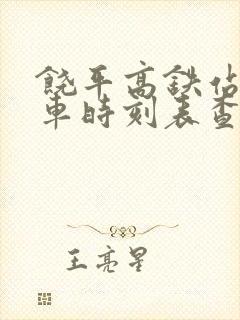 饶平高铁站
车时刻表查
王亮星